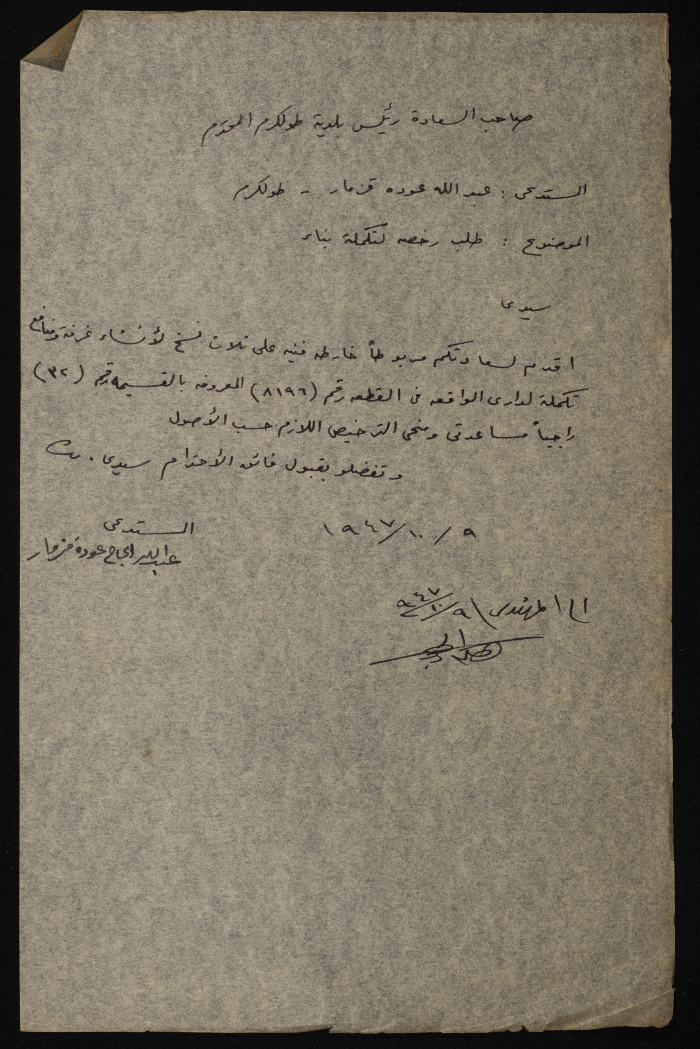 صاحب السعادة رئيس بلدية طولكرم المحترم
المستدعي : عبد الله عوده قزمار - طولكرم
الموضوع : طلب رخصه لتكملة بناء
سيدي
اقدم لسعادتكم مربوطاً خارطه فنيه على ثلاث نسخ لأنشاء غرفة ومنافع
تكملة لداري الواقعه في القطعه رقم (٨١٩٦) المعروفه بالقسيمه رقم (٣٢)
راجياً مساعدتي ومنحي الترخيص اللازم حسب الأصول
وتفضلو بقبول فائق الأحترام سيدي .
١٩٤٧/١٠/٩
المستدعي
عبد الله الحاج عودة قزمار
الى المهندس ٩٤٧/١٠/٩